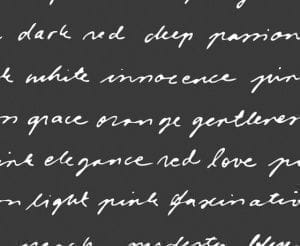 dark red deep passion
white innocence pin
grace orange gentlenes
ink elegance red love p
on light pink fascinatio
peach modesty blu